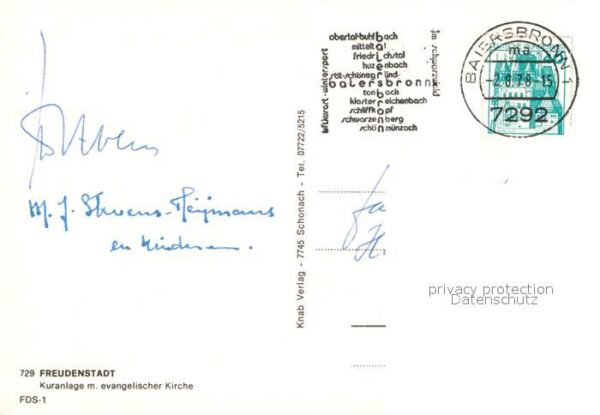 obertal·buhlbach
mitteltal
friedrichstal
huzenbach
röt-schönegründ
baiersbronn
tonbach
kloster reichenbach
schliffkopf
schwarzenberg
schönmünzach
luftkurort-wintersport
im schwarzwald
BAIERSBRONN 1
ma
-2.8.78-15
7292
M. J. Stevens-Heijmans
en kinderen.
Knab Verlag - 7745 Schonach - Tel. 07722/5215
privacy protection
Datenschutz
729 FREUDENSTADT
Kuranlage m. evangelischer Kirche
FDS-1